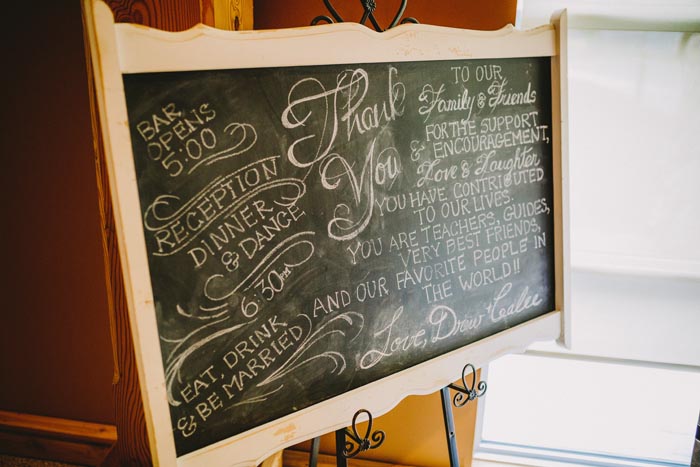 BAR
OPENS
5:00
RECEPTION
DINNER
& DANCE
6:30PM
EAT, DRINK
& BE MARRIED
Thank
You
TO OUR
Family & Friends
FOR THE SUPPORT
& ENCOURAGEMENT,
Love & Laughter
YOU HAVE CONTRIBUTED
TO OUR LIVES.
YOU ARE TEACHERS, GUIDES,
VERY BEST FRIENDS,
AND OUR FAVORITE PEOPLE IN
THE WORLD!!
Love, Drew + Calee